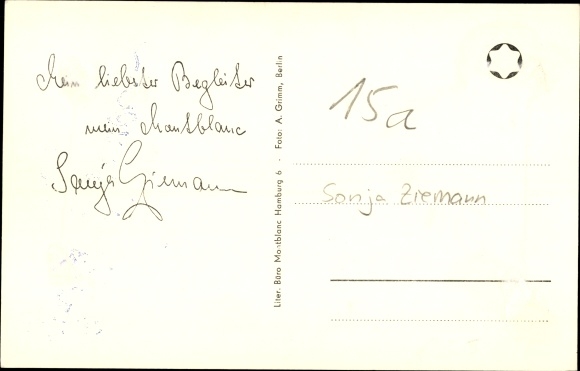 Mein liebster Begleiter
mein Montblanc
Sonja Ziemann
Liter. Büro Montblanc Hamburg 6 · Foto: A. Grimm, Berlin
15a
Sonja Ziemann